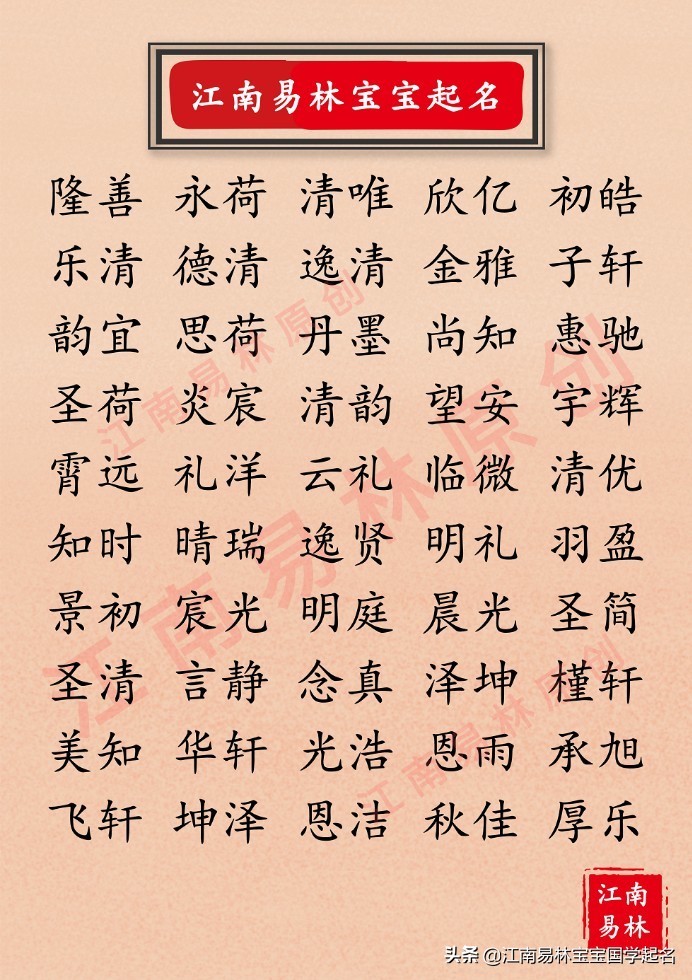 江南易林宝宝起名
隆善 永荷 清唯 欣亿 初皓
乐清 德清 逸清 金雅 子轩
韵宜 思荷 丹墨 尚知 惠驰
圣荷 炎宸 清韵 望安 宇辉
霄远 礼洋 云礼 临微 清优
知时 晴瑞 逸贤 明礼 羽盈
景初 宸光 明庭 晨光 圣简
圣清 言静 念真 泽坤 槿轩
美知 华轩 光浩 恩雨 承旭
飞轩 坤泽 恩洁 秋佳 厚乐
江南易林原创
江南易林原创
江南易林原创
江南
易林
头条 @江南易林宝宝国学起名